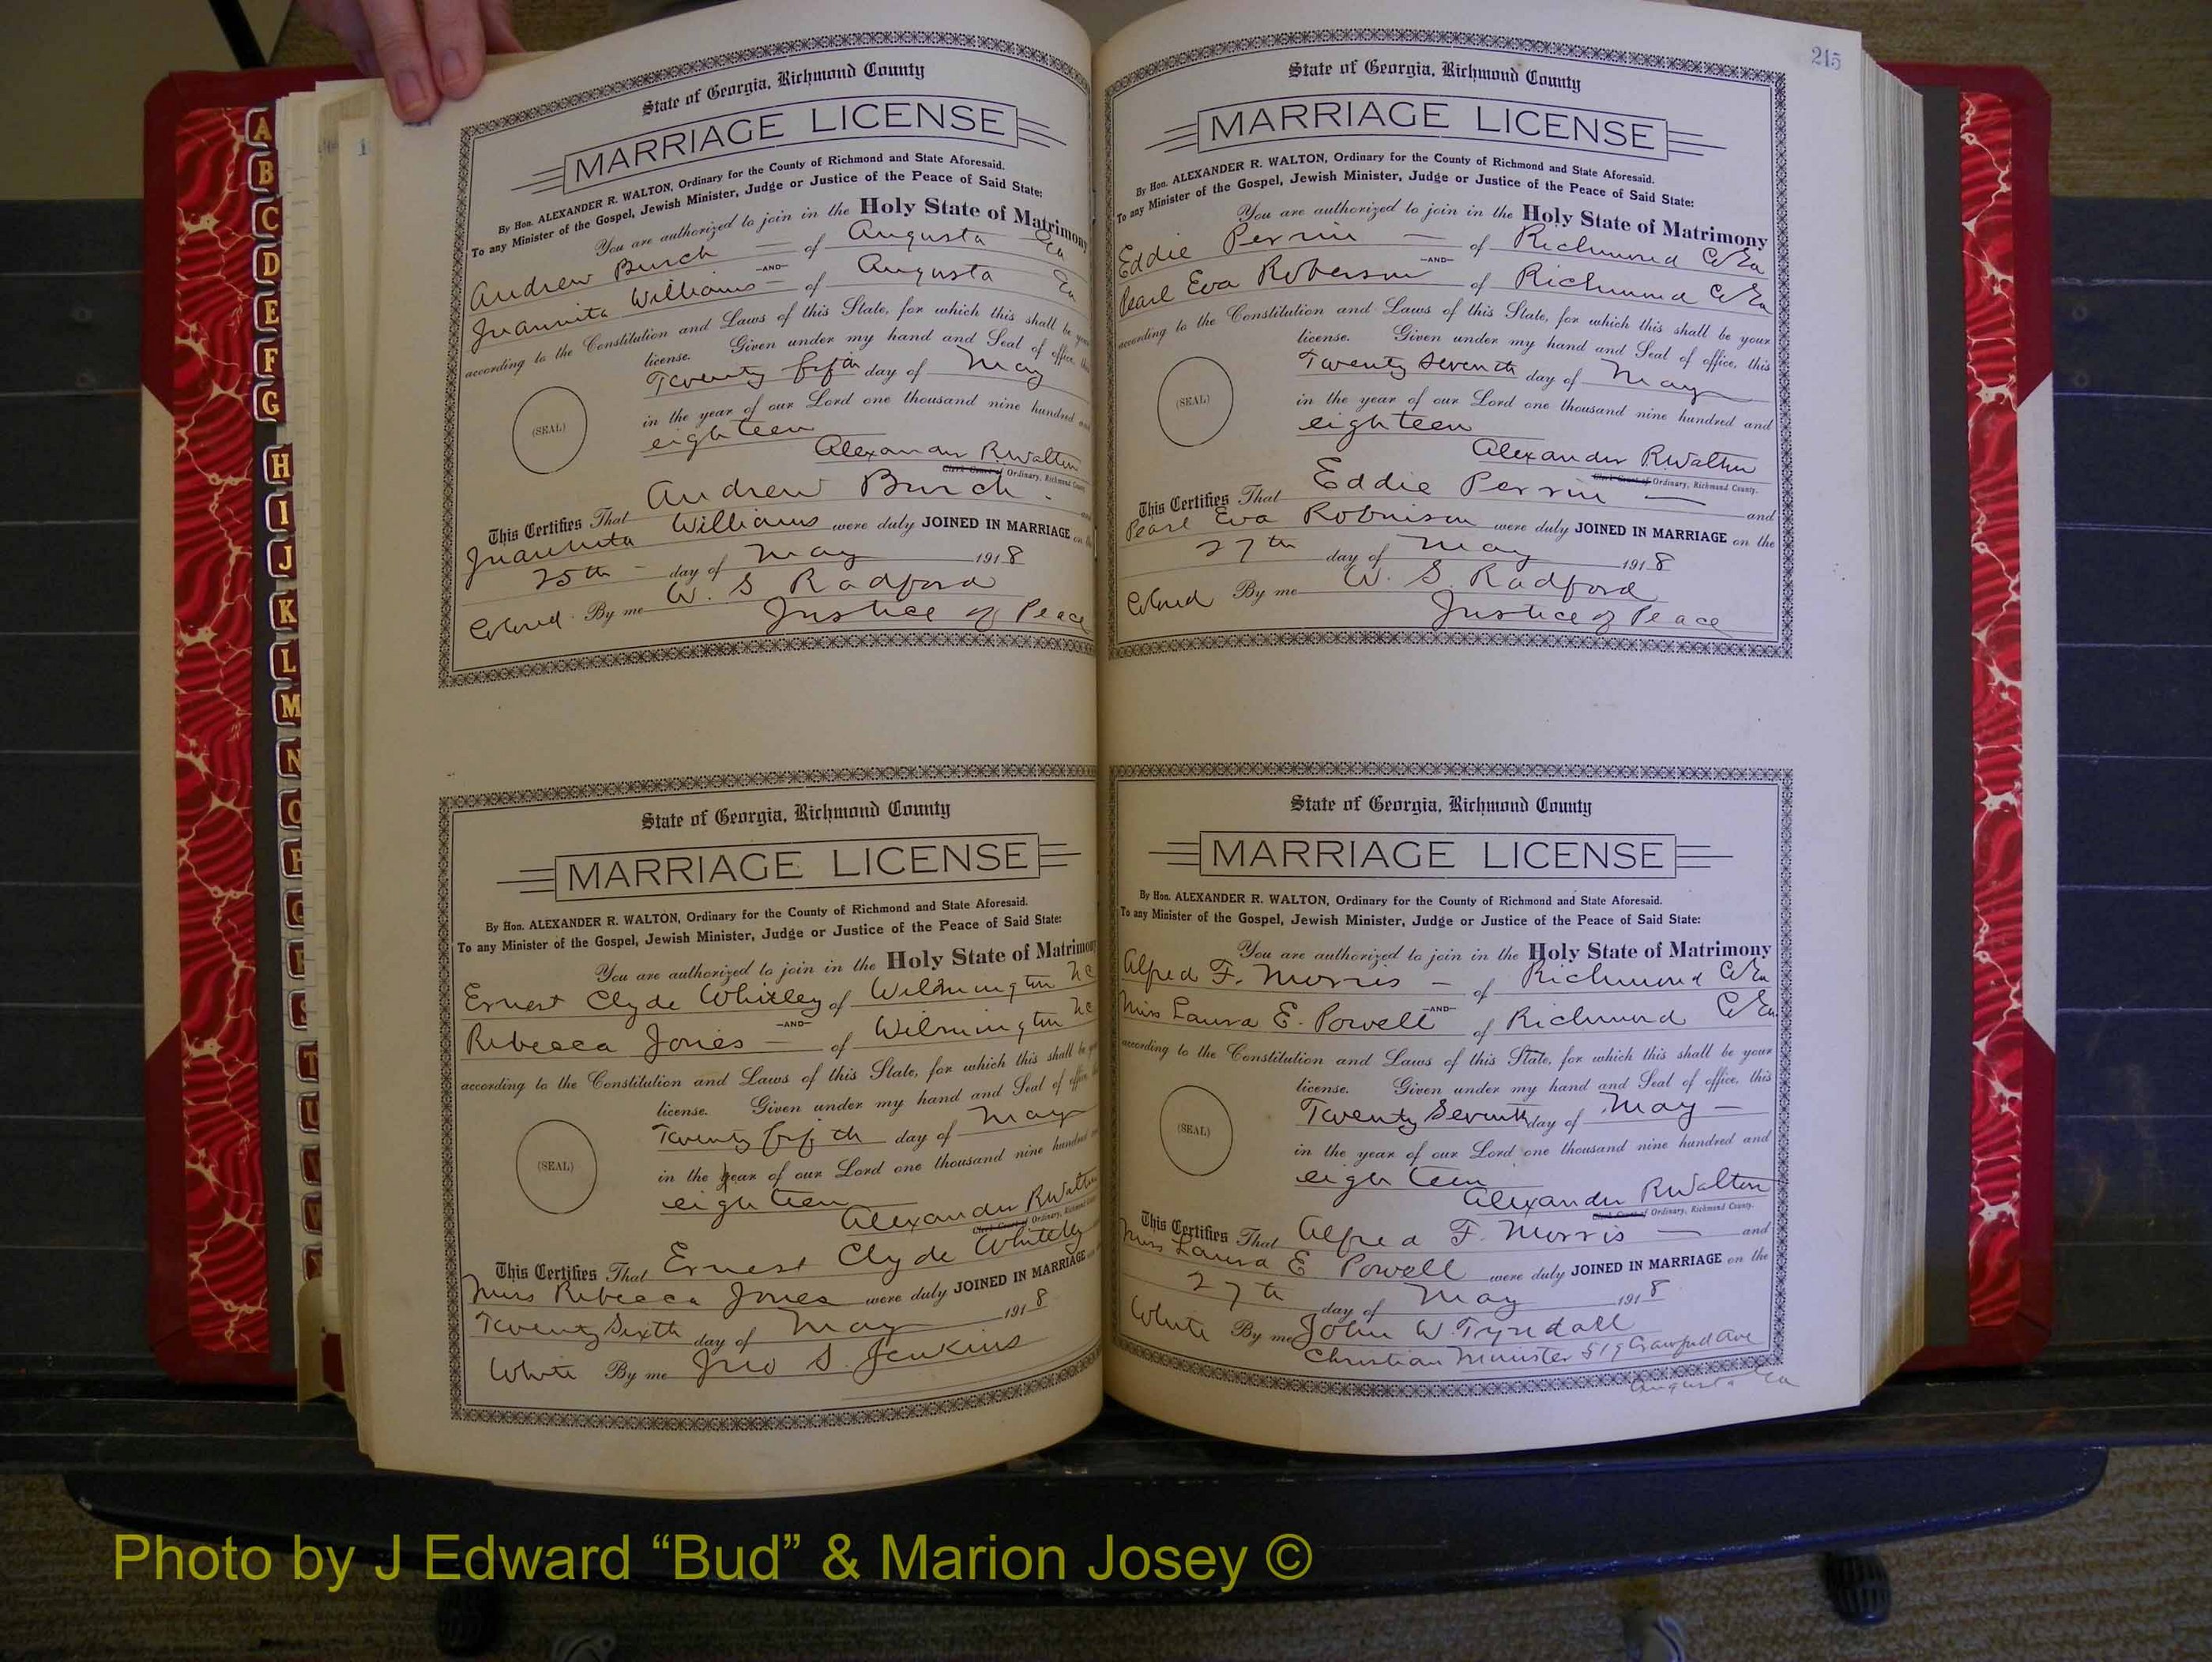 A
B
C
D
E
F
G
H
I
J
K
L
M
N
O
P
Q
R
S
T
U
V
W
State of Georgia, Richmond County
MARRIAGE LICENSE
By Hon. ALEXANDER R. WALTON, Ordinary for the County of Richmond and State Aforesaid.
To any Minister of the Gospel, Jewish Minister, Judge or Justice of the Peace of Said State:
You are authorized to join in the Holy State of Matrimony
Andrew Burch — of Augusta Ga
-AND-
Juannita Williams — of Augusta Ga
according to the Constitution and Laws of this State, for which this shall be your
license. Given under my hand and Seal of office, this
Twenty fifth day of May
(SEAL)
in the year of our Lord one thousand nine hundred and
eighteen
Alexander R. Walton
Clerk Court of Ordinary, Richmond County
This Certifies That Andrew Burch - and
Juannita Williams were duly JOINED IN MARRIAGE on the
25th - day of May 1918
Colored. By me W. S Radford
Justice of Peace
State of Georgia, Richmond County
MARRIAGE LICENSE
By Hon. ALEXANDER R. WALTON, Ordinary for the County of Richmond and State Aforesaid.
To any Minister of the Gospel, Jewish Minister, Judge or Justice of the Peace of Said State:
You are authorized to join in the Holy State of Matrimony
Ernest Clyde Whitley of Wilmington NC
-AND-
Rebecca Jones — of Wilmington NC
according to the Constitution and Laws of this State, for which this shall be
license. Given under my hand and Seal of office
Twenty fifth day of May
(SEAL)
in the year of our Lord one thousand nine hundred
eighteen
Alexander R Walton
Clerk Court of Ordinary, Richmond County
This Certifies That Ernest Clyde Whitelly
Miss Rebecca Jones were duly JOINED IN MARRIAGE
Twenty Sixth day of May 1918
White By me Jno S. Jenkins
215
State of Georgia, Richmond County
MARRIAGE LICENSE
By Hon. ALEXANDER R. WALTON, Ordinary for the County of Richmond and State Aforesaid.
To any Minister of the Gospel, Jewish Minister, Judge or Justice of the Peace of Said State:
You are authorized to join in the Holy State of Matrimony
Eddie Perrin — of Richmond Co Ga
-AND-
Pearl Eva Roberson of Richmond Co Ga
according to the Constitution and Laws of this State, for which this shall be your
license. Given under my hand and Seal of office, this
Twenty Seventh day of May
(SEAL)
in the year of our Lord one thousand nine hundred and
eighteen
Alexander R. Walton
Clerk Court of Ordinary, Richmond County.
This Certifies That Eddie Perrin — and
Pearl Eva Robinison were duly JOINED IN MARRIAGE on the
27th day of May 1918
Colored By me W. S. Radford
Justice of Peace
State of Georgia, Richmond County
MARRIAGE LICENSE
By Hon. ALEXANDER R. WALTON, Ordinary for the County of Richmond and State Aforesaid.
To any Minister of the Gospel, Jewish Minister, Judge or Justice of the Peace of Said State:
You are authorized to join in the Holy State of Matrimony
Alfred F. Morris — of Richmond Co Ga
-AND-
Miss Laura E. Powell of Richmond Co Ga
according to the Constitution and Laws of this State, for which this shall be your
license. Given under my hand and Seal of office, this
Twenty Seventh day of May —
(SEAL)
in the year of our Lord one thousand nine hundred and
eighteen
Alexander R Walton
Clerk Court of Ordinary, Richmond County.
This Certifies That Alfred F. Morris — and
Miss Laura E Powell were duly JOINED IN MARRIAGE on the
27th day of May 1918
White By me John W. Tyndall
Christian Minister 519 Crawford Ave
Augusta Ga
Photo by J Edward “Bud” & Marion Josey ©